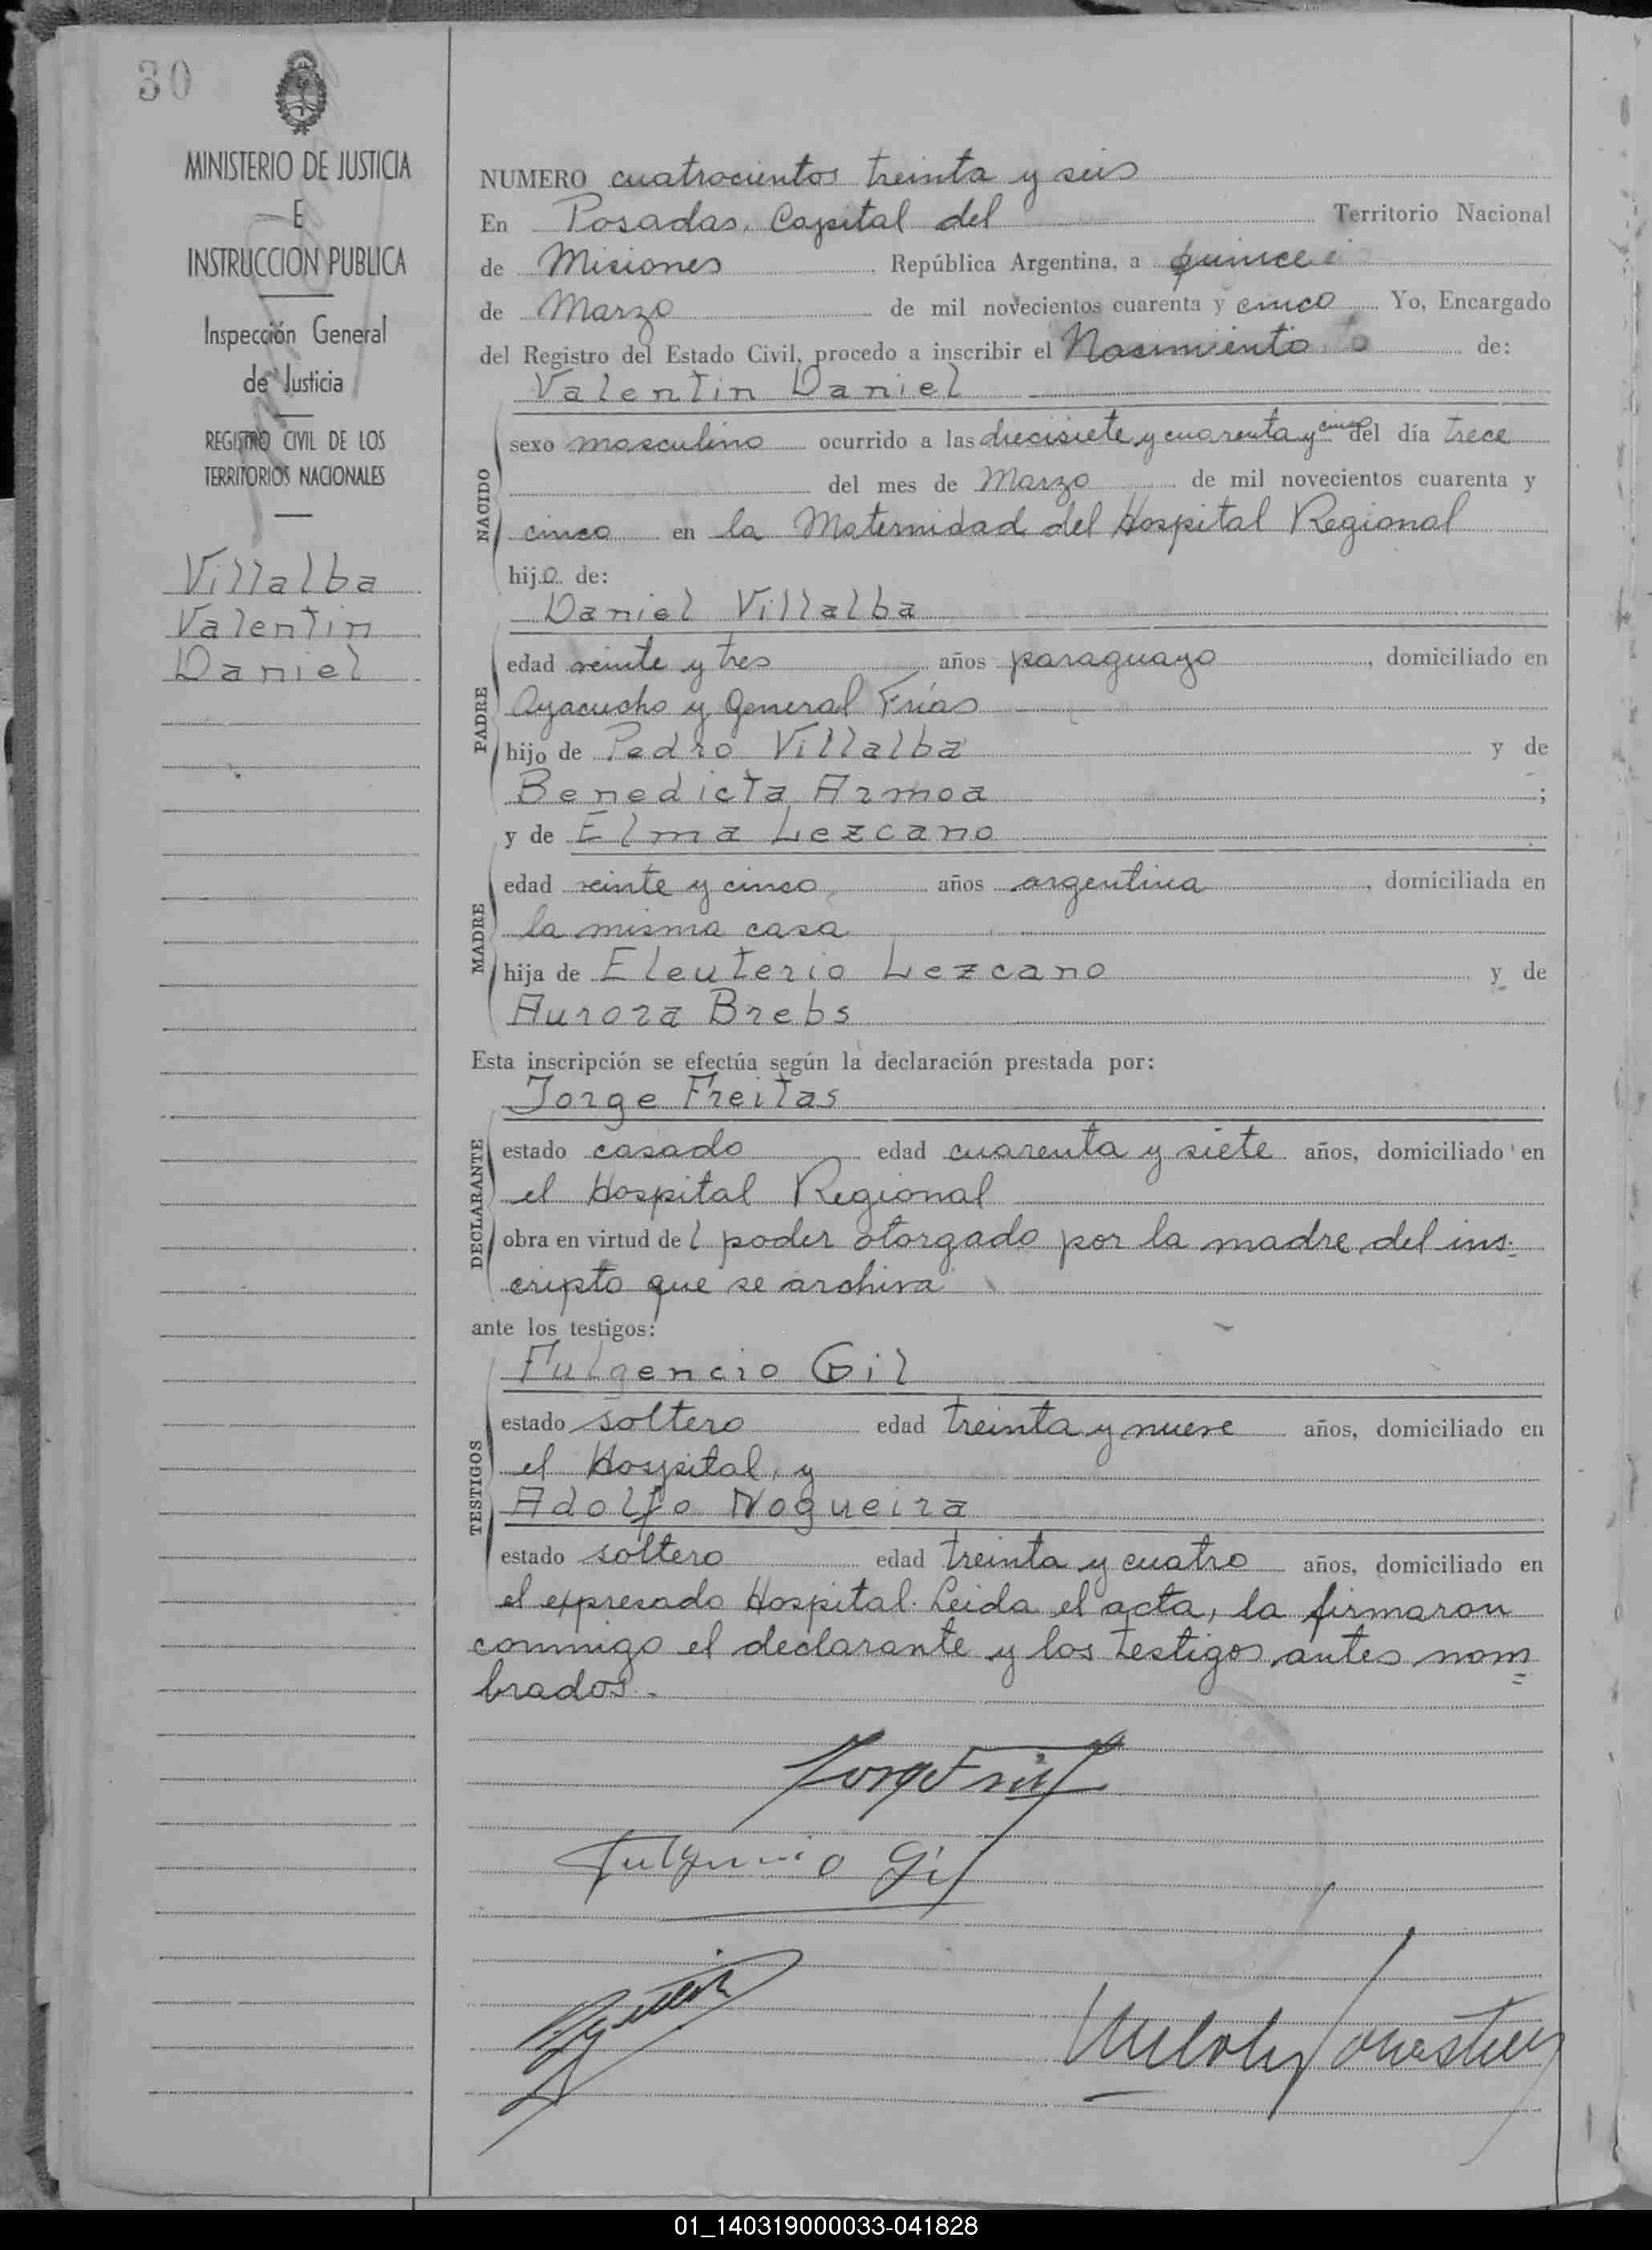 30
MINISTERIO DE JUSTICIA
E
INSTRUCCION PUBLICA
Inspección General
de Justicia
REGISTRO CIVIL DE LOS
TERRITORIOS NACIONALES
Villalba
Valentin
Daniel
NUMERO cuatrocientos treinta y seis
En Posadas, Capital del Territorio Nacional
de Misiones, República Argentina, a quince
de Marzo de mil novecientos cuarenta y cinco Yo, Encargado
del Registro del Estado Civil, procedo a inscribir el Nacimiento de:
Valentin Daniel
NACIDO
sexo masculino ocurrido a las diecisiete y cuarenta y cinco del día trece
del mes de Marzo de mil novecientos cuarenta y
cinco en la Maternidad del Hospital Regional
hijo de:
Daniel Villalba
PADRE
edad veinte y tres años paraguayo, domiciliado en
Ayacucho y General Frías
hijo de Pedro Villalba y de
Benedicta Armoa;
y de Elma Lezcano
MADRE
edad veinte y cinco años argentina, domiciliada en
la misma casa
hija de Eleuterio Lezcano y de
Aurora Brebs
Esta inscripción se efectúa según la declaración prestada por:
Jorge Freitas
DECLARANTE
estado casado edad cuarenta y siete años, domiciliado en
el Hospital Regional
obra en virtud del poder otorgado por la madre del ins-
cripto que se archiva
ante los testigos:
Fulgencio Gil
TESTIGOS
estado soltero edad treinta y nueve años, domiciliado en
el Hospital, y
Adolfo Nogueira
estado soltero edad treinta y cuatro años, domiciliado en
el expresado Hospital. Leida el acta, la firmaron
conmigo el declarante y los testigos antes nom=
brados.-
Fulgencio Gil
01_140319000033-041828